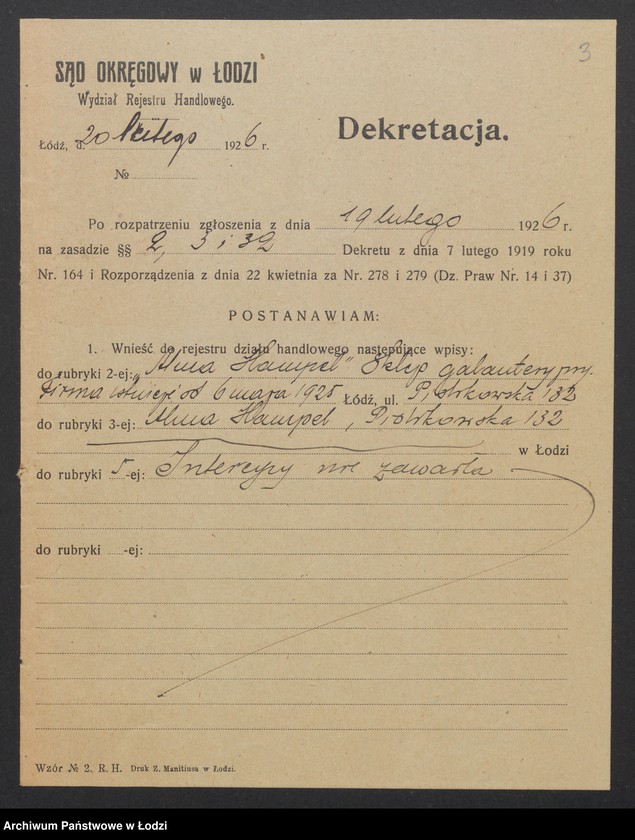 3
SĄD OKRĘGOWY w ŁODZI
Wydział Rejestru Handlowego.
Łódź, d. 20 lutego 1926 r.
№
Dekretacja.
Po rozpatrzeniu zgłoszenia z dnia 19 lutego 1926 r.
na zasadzie §§ 2, 3 i 32 Dekretu z dnia 7 lutego 1919 roku
Nr. 164 i Rozporządzenia z dnia 22 kwietnia za Nr. 278 i 279 (Dz. Praw Nr. 14 i 37)
POSTANAWIAM:
1. Wnieść do rejestru działu handlowego następujące wpisy:
do rubryki 2-ej: „Alma Hampel" Sklep galanteryjny.
Firma istnieje od 6 maja 1925 Łódź, ul. Piotrkowska 132
do rubryki 3-ej: Alma Hampel, Piotrkowska 132
w Łodzi
do rubryki 5-ej: Intercyzy nie zawarła
do rubryki -ej:
Wzór № 2. R. H. Druk Z. Manitiusa w Łodzi.
Archiwum Państwowe w Łodzi